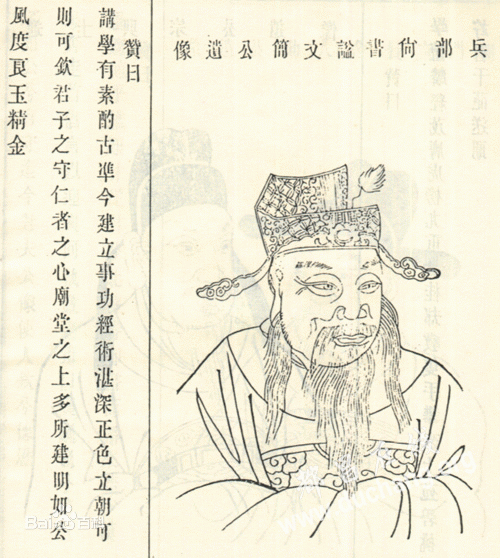 兵部尚書諡文簡公遺像
贊曰
講學有素酌古準今建立事功經術湛深正色立朝可
則可欽君子之守仁者之心廟堂之上多所建明如公
風度良玉精金
Bai百科